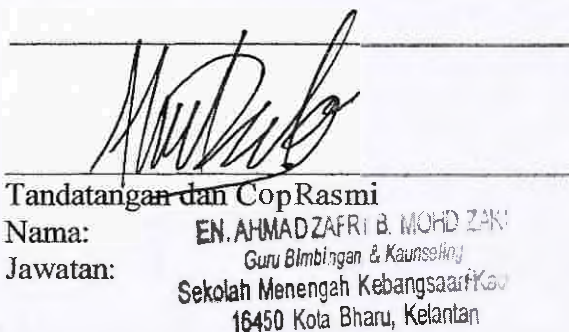 Tandatangan dan CopRasmi
Nama: EN. AHMAD ZAFRI B. MOHD ZAKI
Jawatan: Guru Bimbingan & Kaunseling
Sekolah Menengah Kebangsaan
16450 Kota Bharu, Kelantan